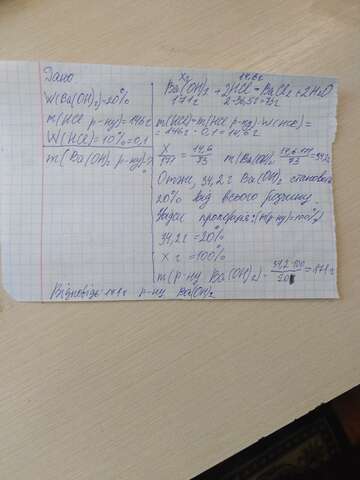 Дано
W(Ba(OH)₂)=20%
m(HCl р-ну)=146г
W(HCl)=10%=0,1
m(Ba(OH)₂ р-ну)-?
Xг 14,6г
Ba(OH)₂+2HCl=BaCl₂+2H₂O
171г 2·36,5г=73г
m(HCl)=m(HCl р-ну)·W(HCl)=
=146г·0,1=14,6г
X/171=14,6/73 m(Ba(OH)₂ 14,6·171/73=34,2г
Отже, 34,2г Ba(OH)₂ становить
20% від всього розчину.
пропорція:(m(р-ну)=100%)
34,2г=20%
X г =100%
m(р-ну Ba(OH)₂)-34,2·100/20=171г
Відповідь: 171г р-ну Ba(OH)₂